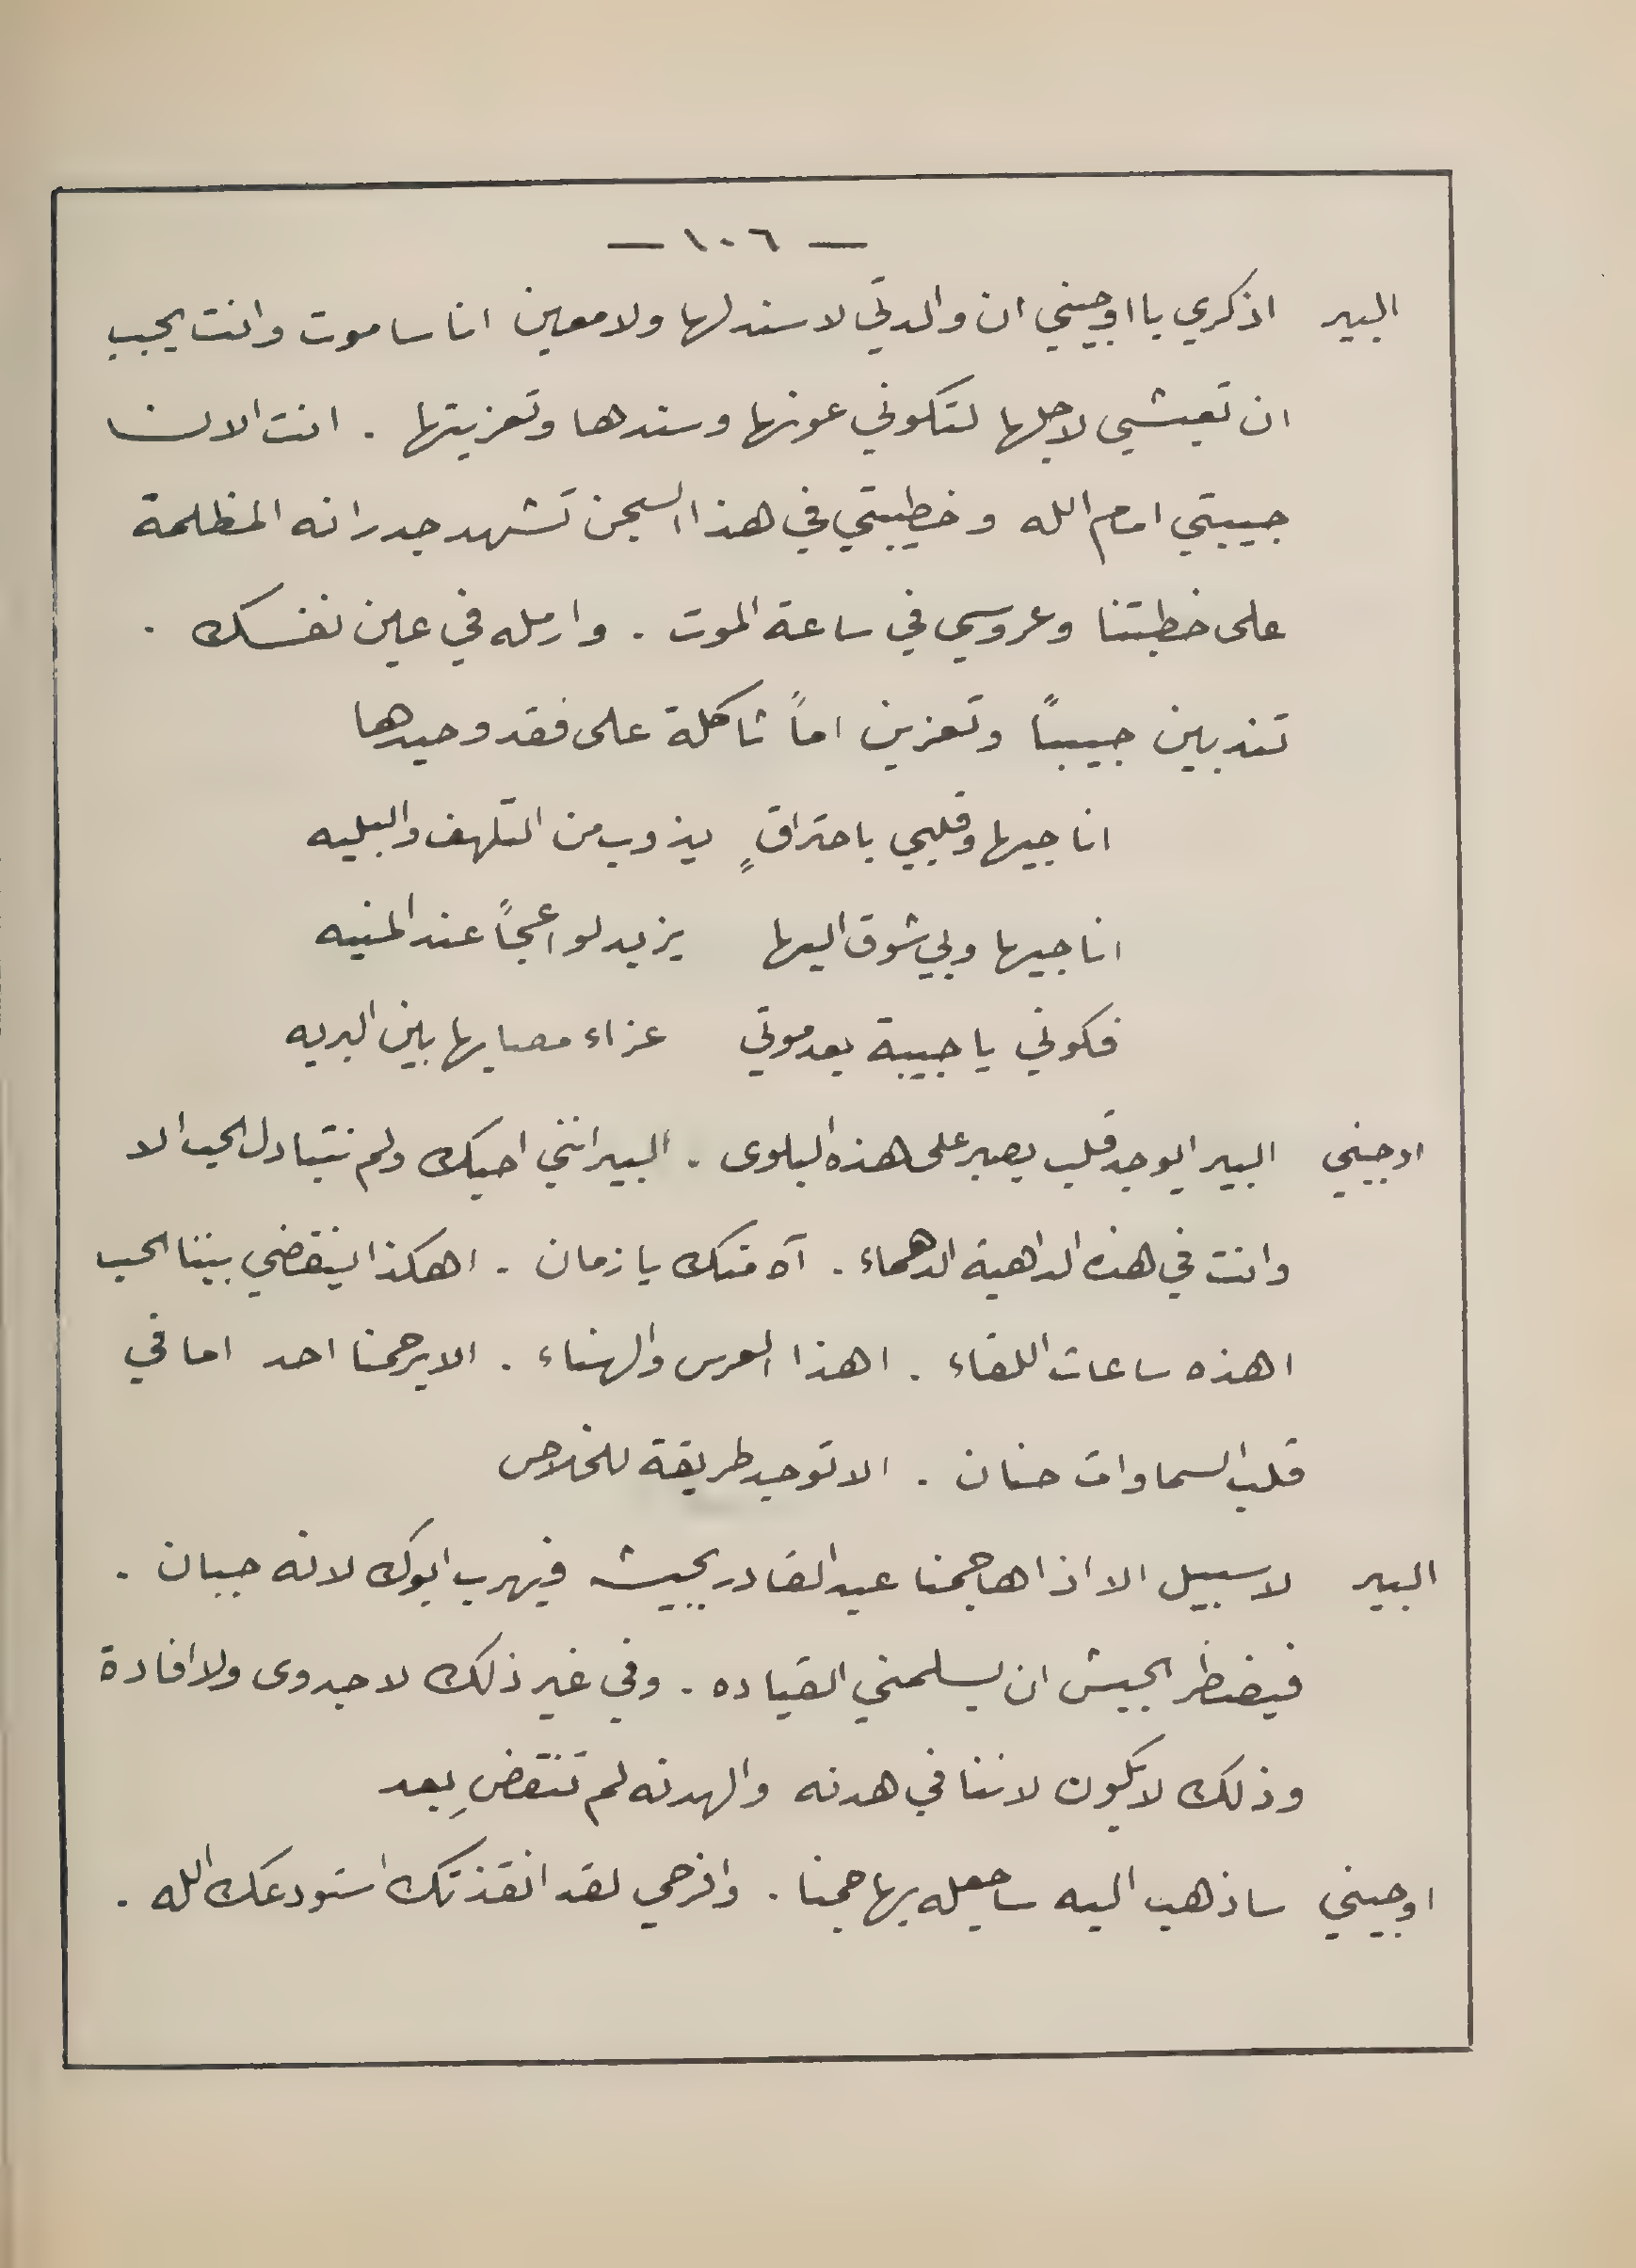 — ١٠٦ —
البير اذكري يا اوجيني ان والدتي لا سند لها ولا معين انا ساموت وانت يجب
ان تعيشي لاجلها لتكوني عونها وسندها وتعزيتها . انت الان
حبيبتي امام الله وخطيبتي في هذا السجن تشهد جدرانه المظلمة
على خطبتنا وعروسي في ساعة الموت . وارمله في عين نفسك .
تندبين حبيباً وتعزين اماً ثاكلة على فقد وحيدها
اناجيها وقلبي باحتراقٍ يذوب من التلهف والبليه
اناجيها وبي شوق اليها يزيد لواعجاً عند المنيه
فكوني يا حبيبة بعد موتي عزاء مصابها بين البريه
اوجيني البير ايوجد قلب يصبر على هذه البلوى . البير انني احبك ولم نتبادل الحب الا
وانت في هذه الداهية الدهماء . آه منك يا زمان . اهكذا ينقضي بيننا الحب
اهذه ساعات اللقاء . اهذا العرس والهناء . الا يرحمنا احد اما في
قلب السماوات حنان . الا توجد طريقة للخلاص
البير لا سبيل الا اذا هاجمنا عبد القادر بجيشه فيهرب ابوك لانه جبان .
فيضطر الجيش ان يسلمني القياده . وفي غير ذلك لا جدوى ولا افادة
وذلك لا يكون لاننا في هدنه والهدنه لم تنتقضِ بعد
اوجيني ساذهب اليه ساجعله يهاجمنا . وافرحي لقد انقذتك استودعك الله .